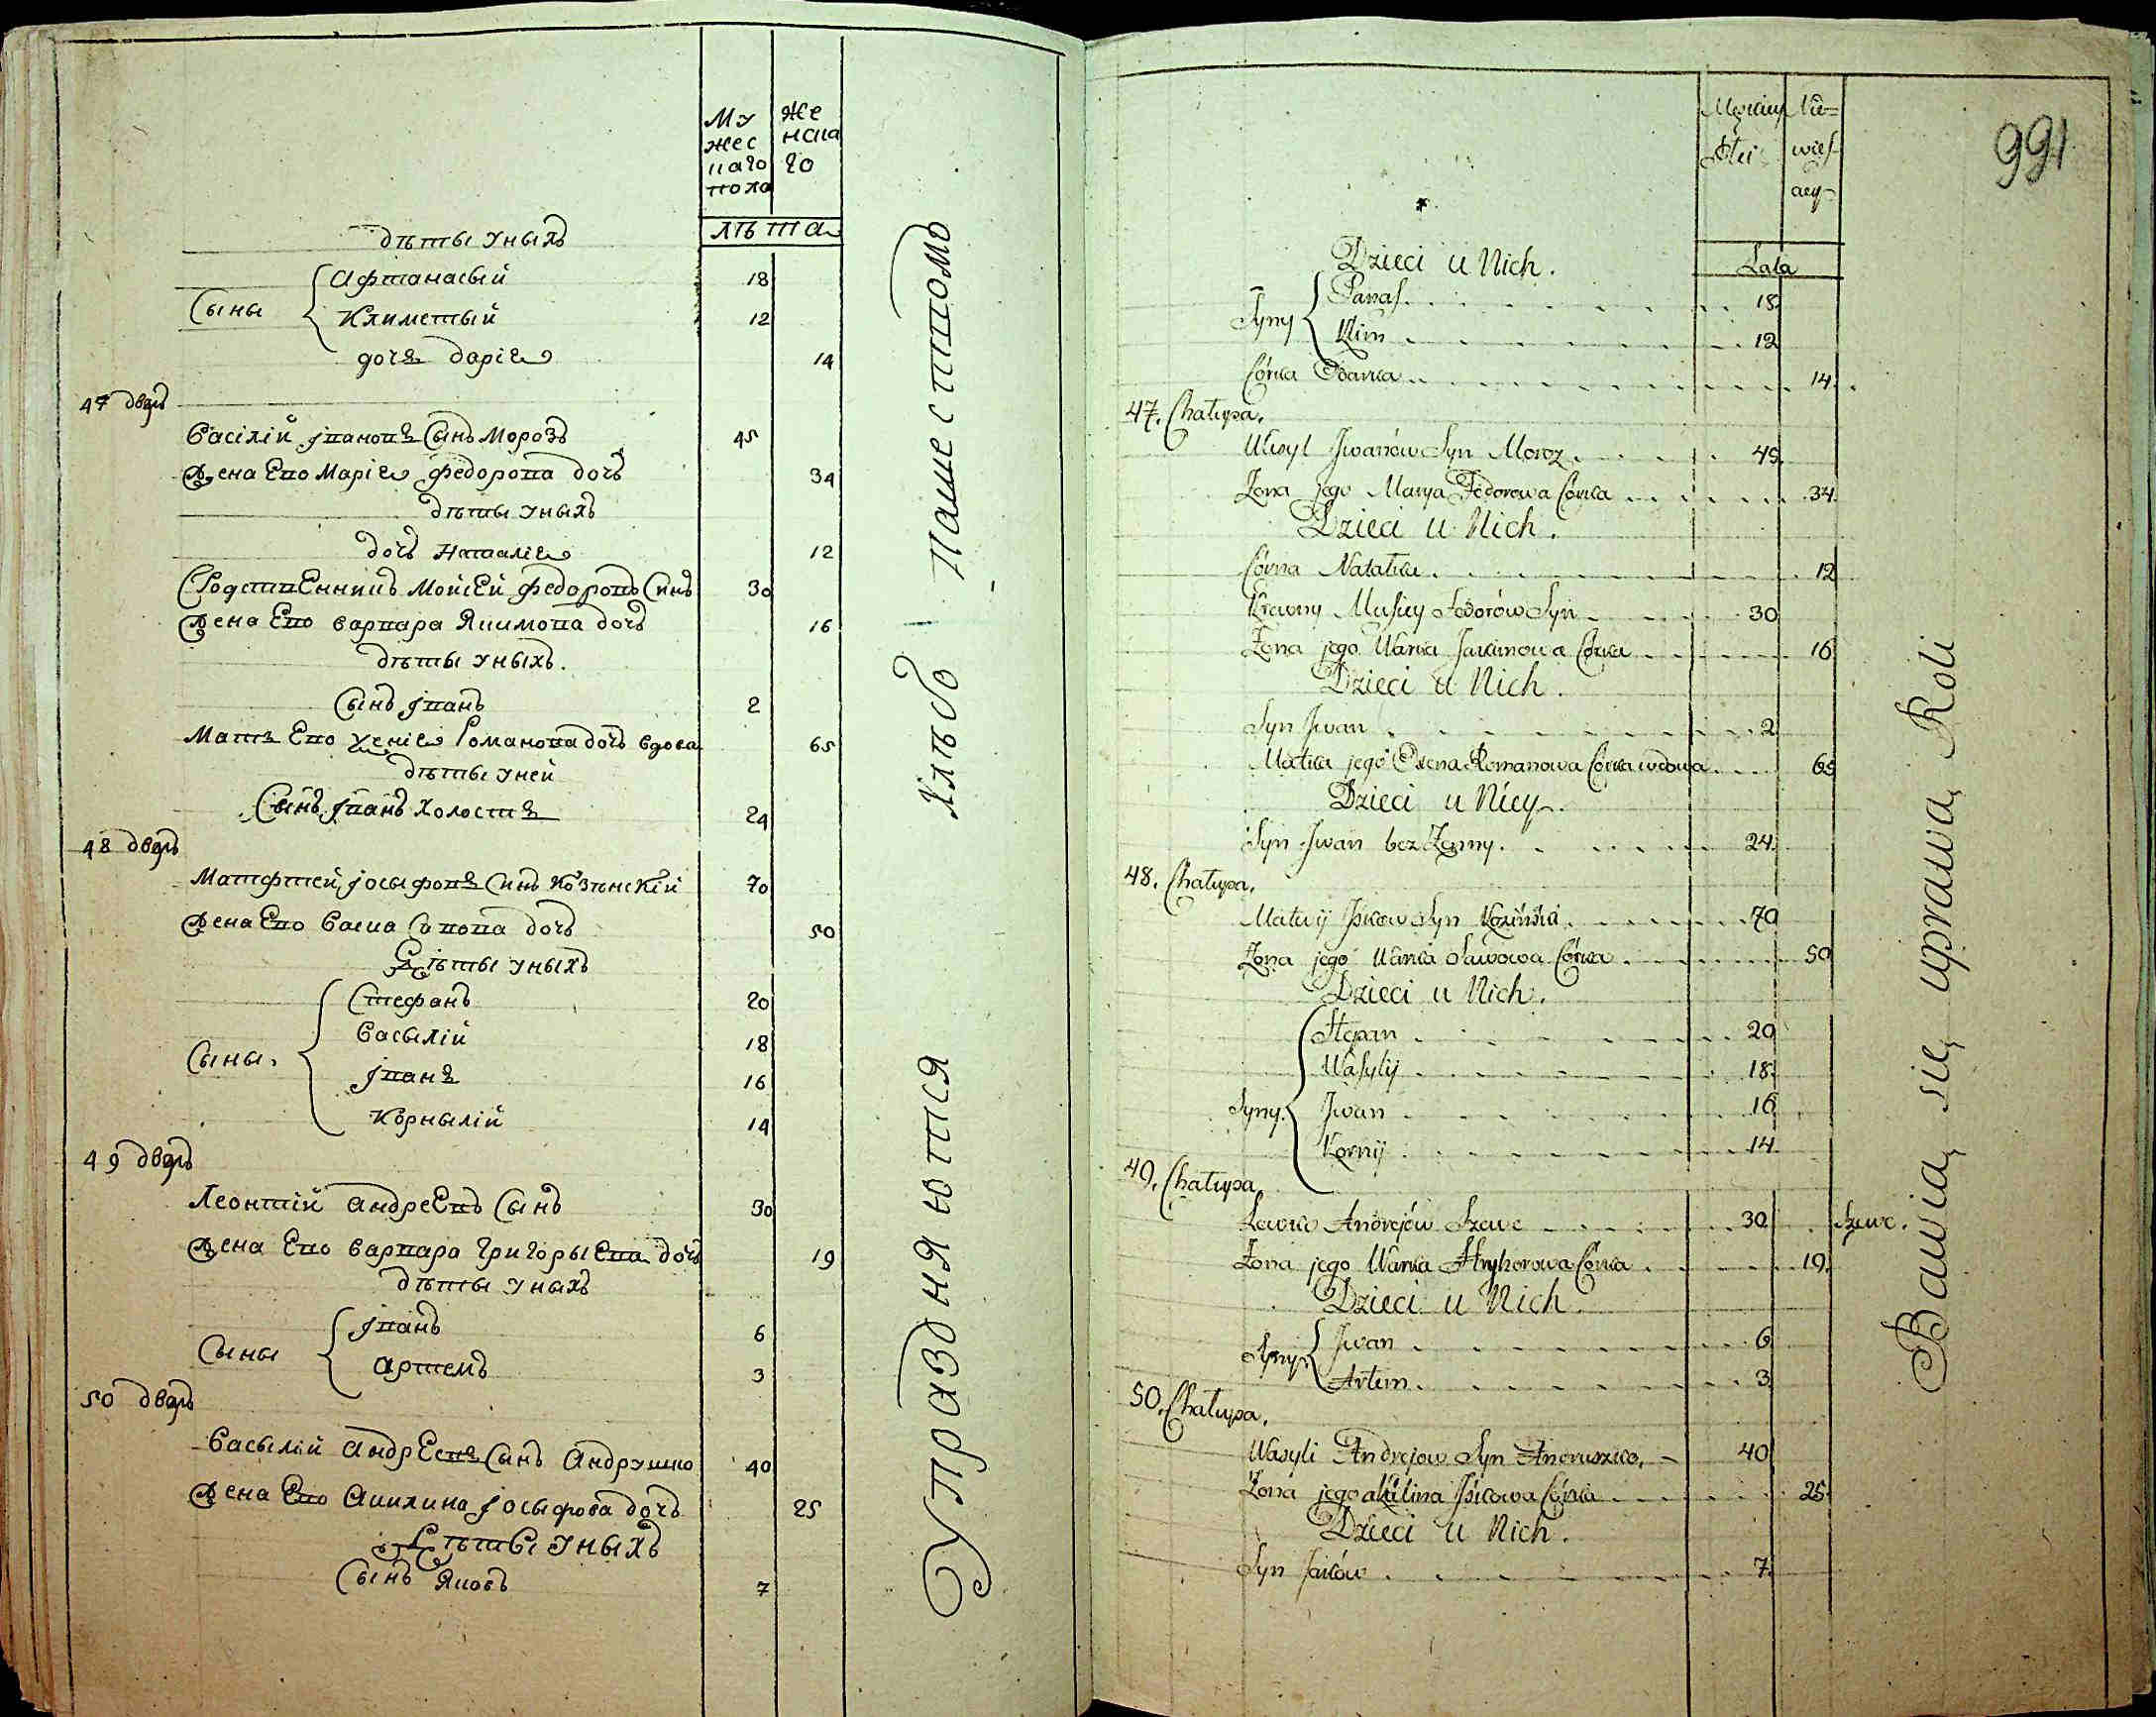 Му
жес
каго
пола
Же
нска
го
лѣта
дѣты уныхъ
Сыны
Афтанасый
18
Климетый
12
дочъ Даріѧ
14
47 дворъ
Васілій Iвановъ Сынъ Морозъ
45
Жена Его Маріѧ Федорова дочъ
34
дѣты уныхъ
дочъ Наталіѧ
12
Родственникъ Мойсей Федоровъ Синъ
30
Жена Его Варвара Якимова дочъ
16
дѣты уныхъ.
Сынъ Iванъ
2
Матъ Его Ксеніѧ Романова дочъ вдова
65
дѣты уней
Сынъ Iванъ Холостъ
24
48 дворъ
Матфтей Iосыфовъ Синъ Козѣнскій
70
Жена Его Васка Савова дочъ
50
Дѣты уныхъ
Сыны.
Стефанъ
20
Васылій
18
Iванъ
16
Корнылій
14
49 дворъ
Леонтій Андреевъ Сынъ
30
Жена Его Варвара Григорыева дочъ
19
дѣты уныхъ
Сыны
Iванъ
6
Артемъ
3
50 дворъ
Васылій Андреевъ Сынъ Андрушко
40
Жена Его Акилина Iосыфова дочъ
25
Дѣты уныхъ
Сынъ Яковъ
7
Упраздняются Хлѣбо Пашеством
991
Męzczy
Nie=
wies
Lata
Dzieci u Nich.
Syny
Panas
18
Klim
12
Córka Darka
14
47. Chałupa.
Wasyl Jwanów Syn Moroz
45
Zona jego Marya Fedorowa Córka
34
Dzieci u Nich.
Córka Natałka
12
Krewny Musiey Fedorów Syn
30
Zona jego Warka Jakimowa Córka
16
Dzieci u Nich.
Syn Jwan
2
Matka jego Oxena Romanowa Córka wdowa
65
Dzieci u Niey.
Syn Jwan bez Zonny.
24
48. Chałupa.
Matwij Jśkow Syn Koziński
70
Zona jego Warka Sawowa Córka
50
Dzieci u Nich.
Syny.
Stepan
20
Wasylij
18
Jwan
16
Kornij
14
49. Chałupa
Lewko Andrejów Szewc
30
Szewc.
Zona jego Warka Hryhorowa Córka
19.
Dzieci u Nich.
Syny
Jwan
6
Artem
3
50. Chałupa.
Wasyli Andrejow Syn Andruszko.
40
Zona jego Akilina Jśkowa Córka
25
Dzieci u Nich.
Syn Jaków
7
Bawią się uprawą Roli